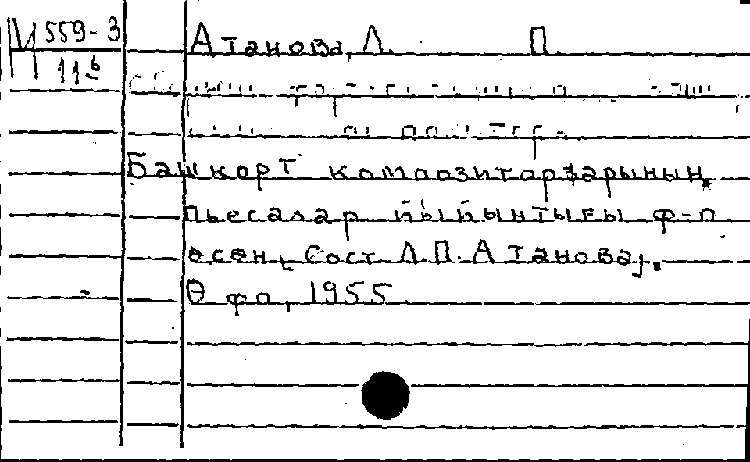 И 559-3
11б
Атанова, Л. П.
Башкорт композиторҙарының
пьесалар йыйынтығы ф-п
өсен, Сост. Л.П. Атанова].
Өфө, 1955